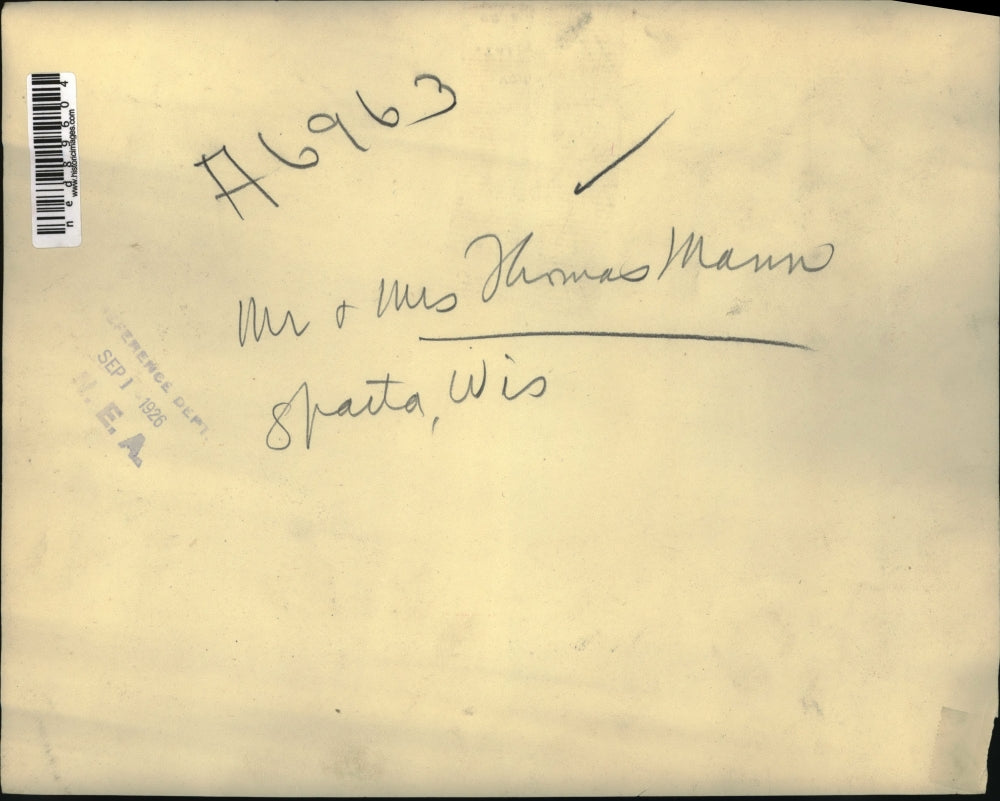 A6963
Mr + Mrs Thomas Mann
Sparta, Wis
REFERENCE DEPT.
SEP 1 1926
N. E. A.
ned89604
www.historicimages.com